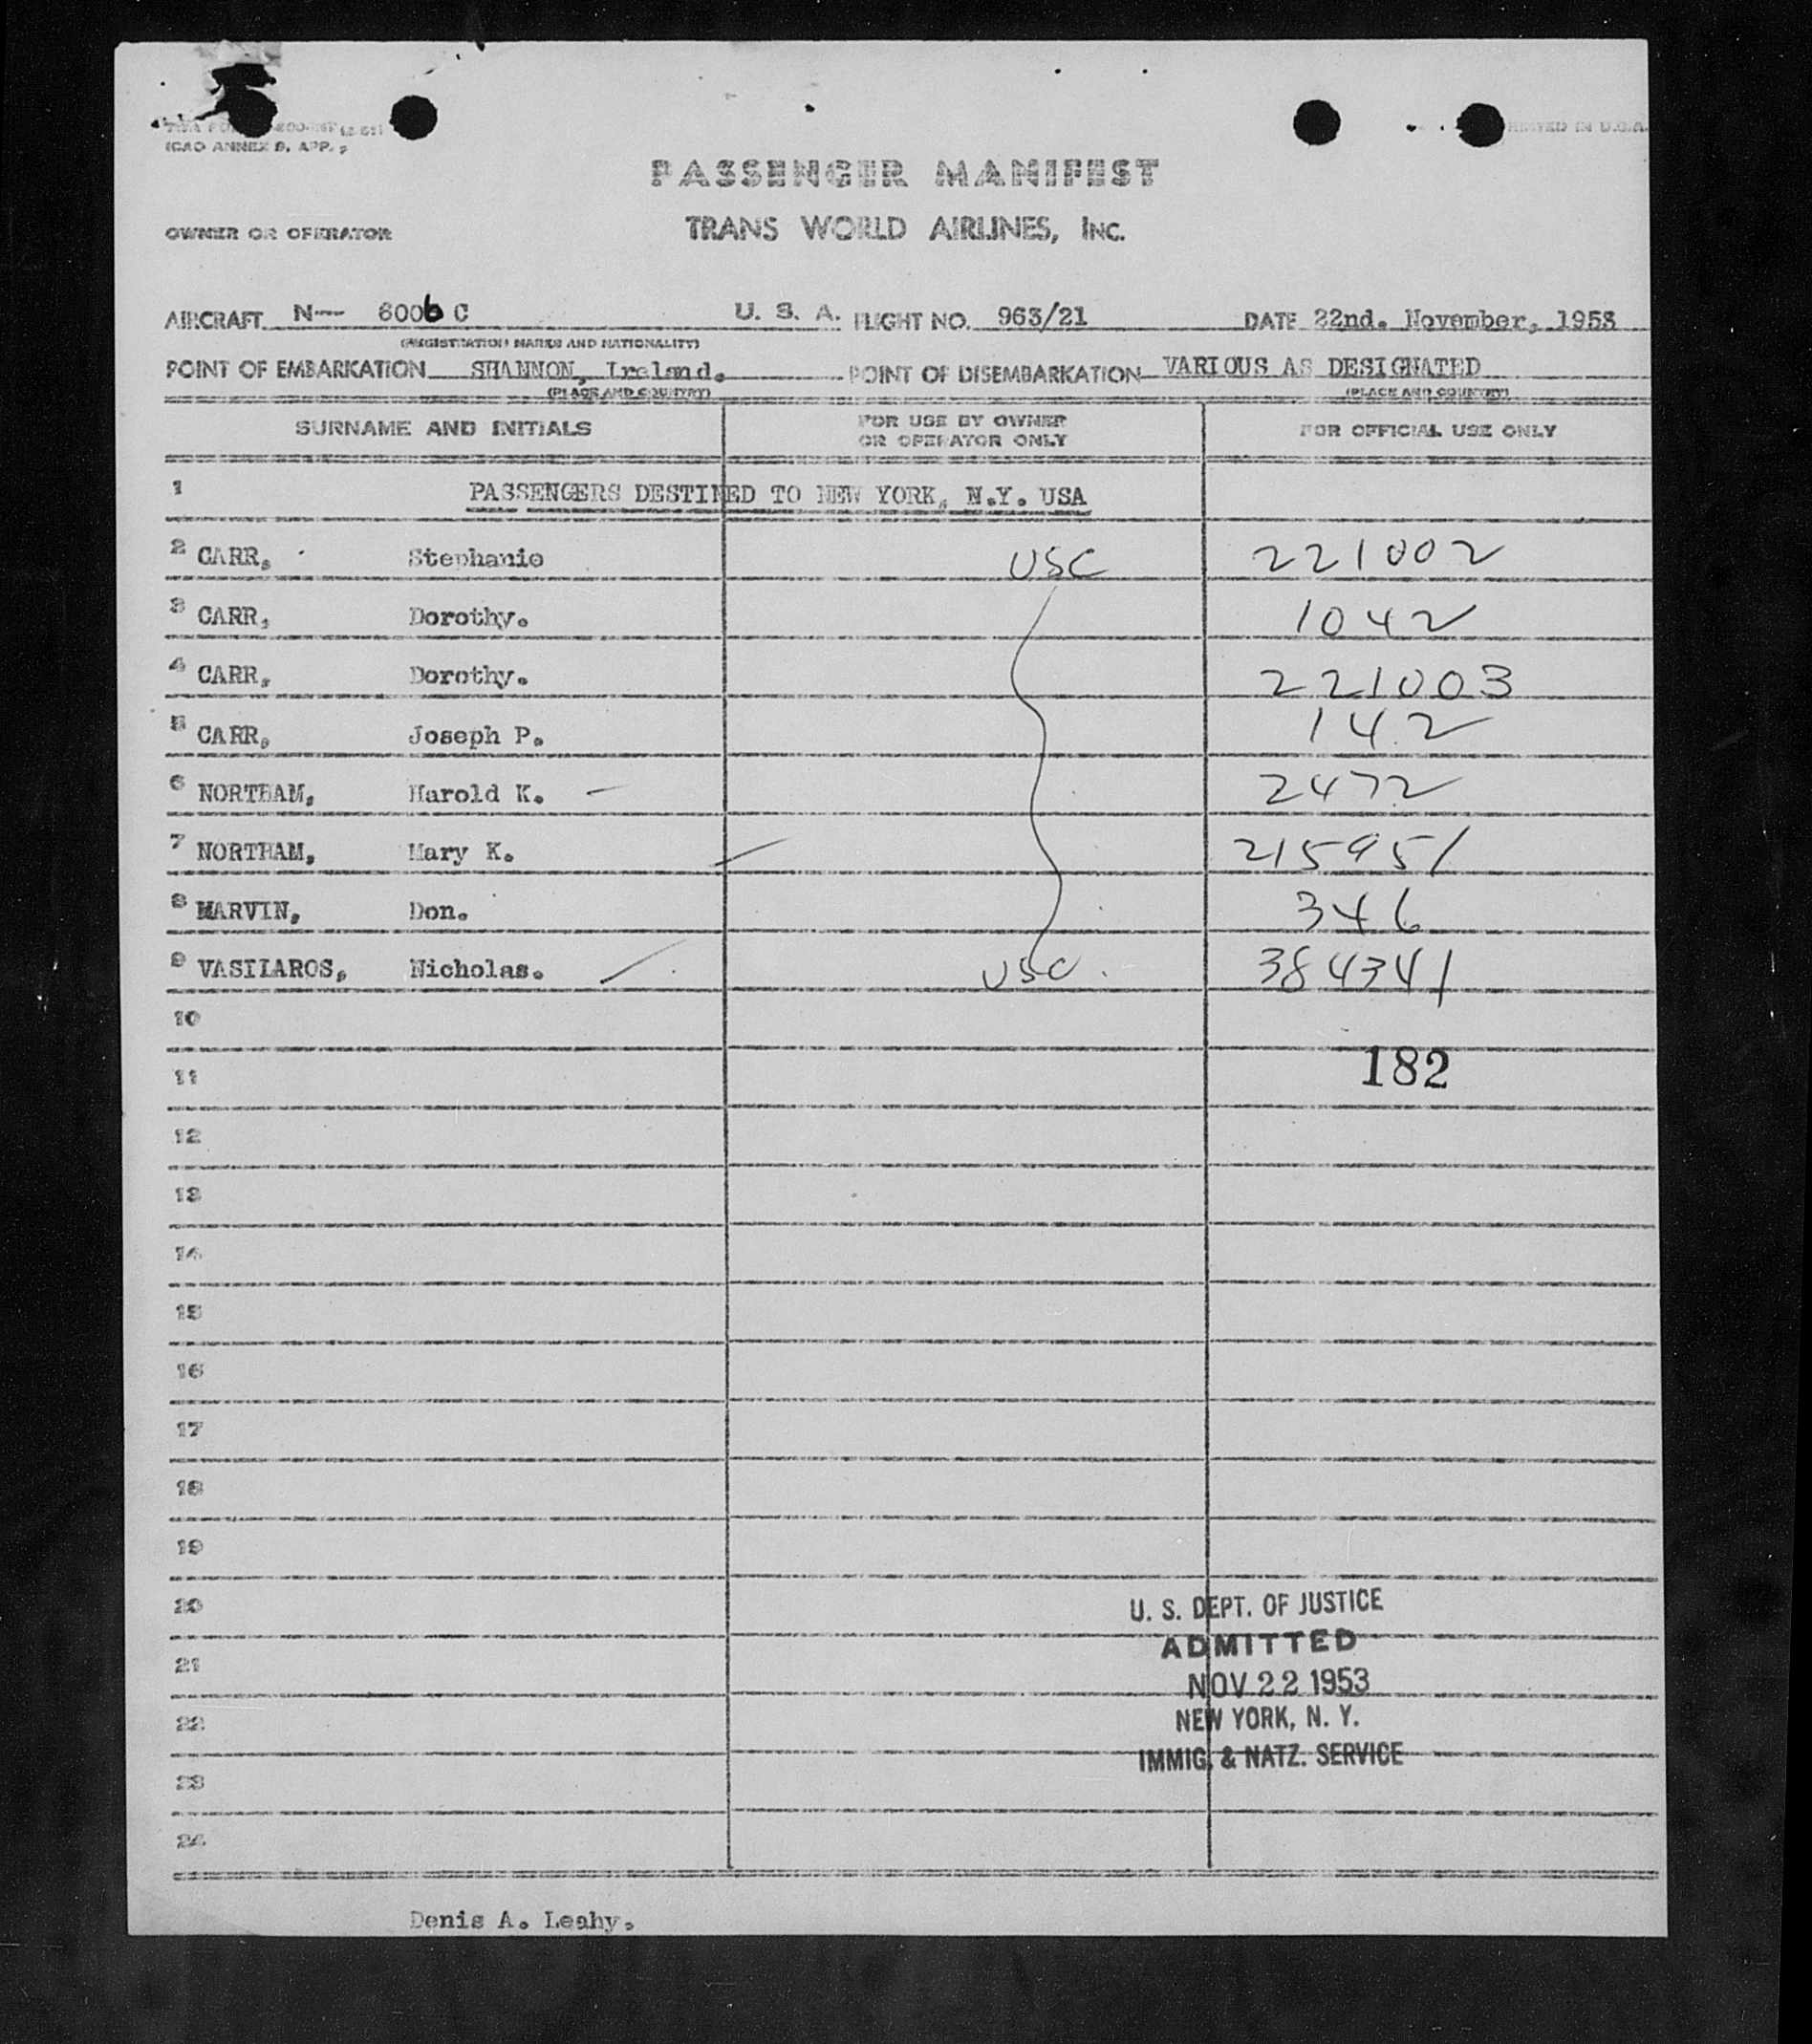 ICAO ANNEX 9, APP.
PRINTED IN U.S.A.
PASSENGER MANIFEST
OWNER OR OPERATOR TRANS WORLD AIRLINES, INC.
AIRCRAFT N-- 6006 C U. S. A. FLIGHT NO. 963/21 DATE 22nd. November, 1953
(REGISTRATION MARKS AND NATIONALITY)
POINT OF EMBARKATION SHANNON, Ireland. POINT OF DISEMBARKATION VARIOUS AS DESIGNATED
(PLACE AND COUNTRY) (PLACE AND COUNTRY)
SURNAME AND INITIALS FOR USE BY OWNER OR OPERATOR ONLY FOR OFFICIAL USE ONLY
1 PASSENGERS DESTINED TO NEW YORK, N.Y. USA
2 CARR, Stephanie USC 221002
3 CARR, Dorothy. 1042
4 CARR, Dorothy. 221003
5 CARR, Joseph P. 142
6 NORTHAM, Harold K. 2472
7 NORTHAM, Mary K. 215951
8 MARVIN, Don. 346
9 VASILAROS, Nicholas. USC 384341
10
11 182
12
13
14
15
16
17
18
19
20 U. S. DEPT. OF JUSTICE
ADMITTED
21 NOV 22 1953
22 NEW YORK, N. Y.
IMMIG. & NATZ. SERVICE
23
24
Denis A. Leahy.